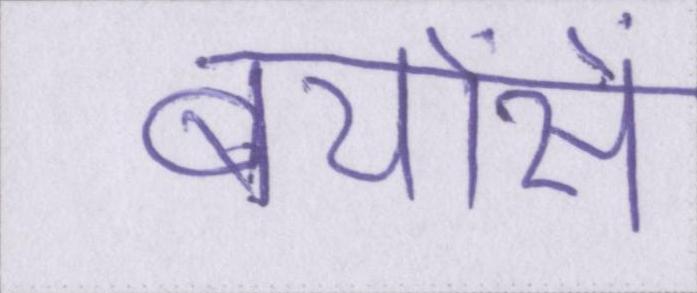 बयोंसें